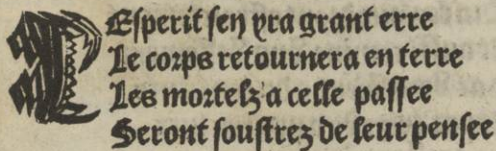 LEsperit sen yra grant erre
Le corps retournera en terre
Les mortelz a celle passee
Seront soustrez de leur pensee